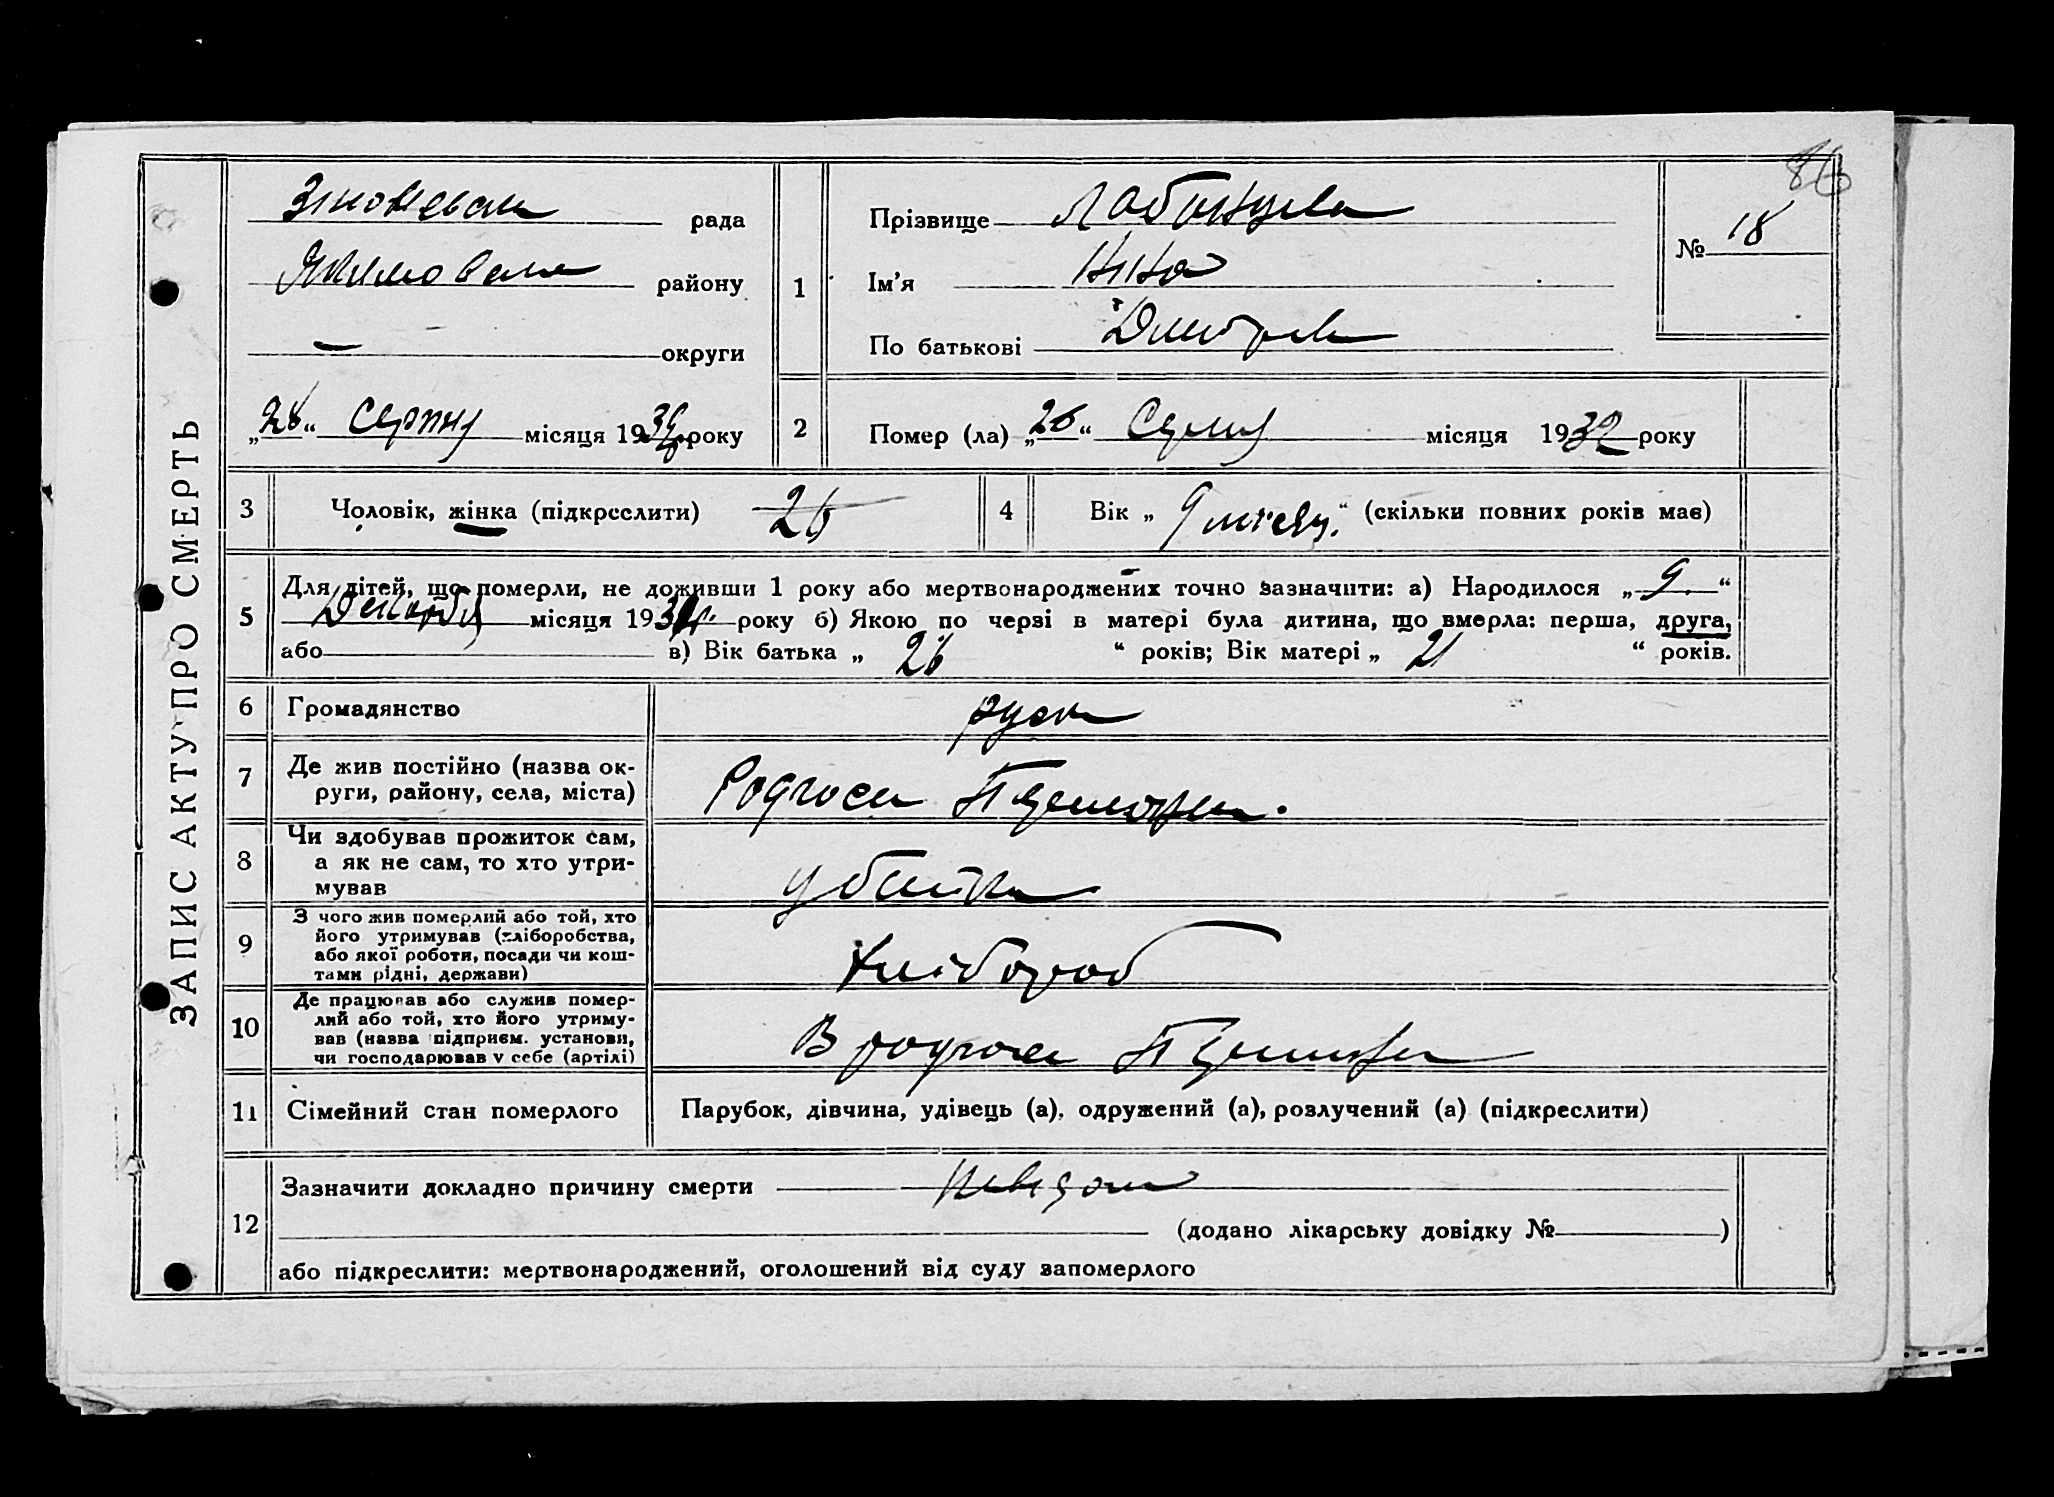 ЗАПИС АКТУ ПРО СМЕРТЬ
86
рада
району
округи
„28“ Серпня місяця 1932 року
1
Прізвище
Ім’я Ніна
По батькові
№ 18
2
Помер (ла) „26“ Серпня місяця 1932 року
3
Чоловік, жінка (підкреслити) 26
4
Вік „9 місяц.“ (скільки повних років має)
5
Для дітей, що померли, не доживши 1 року або мертвонароджених точно зазначити: а) Народилося „9“
Декабря місяця 1931 року б) Якою по черзі в матері була дитина, що вмерла: перша, друга,
або в) Вік батька „26“ років; Вік матері „21“ років.
6
Громадянство руск
7
Де жив постійно (назва ок-
руги, району, села, міста)
8
Чи здобував прожиток сам,
а як не сам, то хто утри-
мував
у батька
9
З чого жив померлий або той, хто
його утримував (хліборобства,
або якої роботи, посади чи кош-
тами рідні, держави)
Хлібороб
10
Де працював або служив помер-
лий або той, хто його утриму-
вав (назва підприєм. установи,
чи господарював у себе (артілі)
В
11
Сімейний стан померлого
Парубок, дівчина, удівець (а), одружений (а), розлучений (а) (підкреслити)
12
Зазначити докладно причину смерти
(додано лікарську довідку № )
або підкреслити: мертвонароджений, оголошений від суду запомерлого